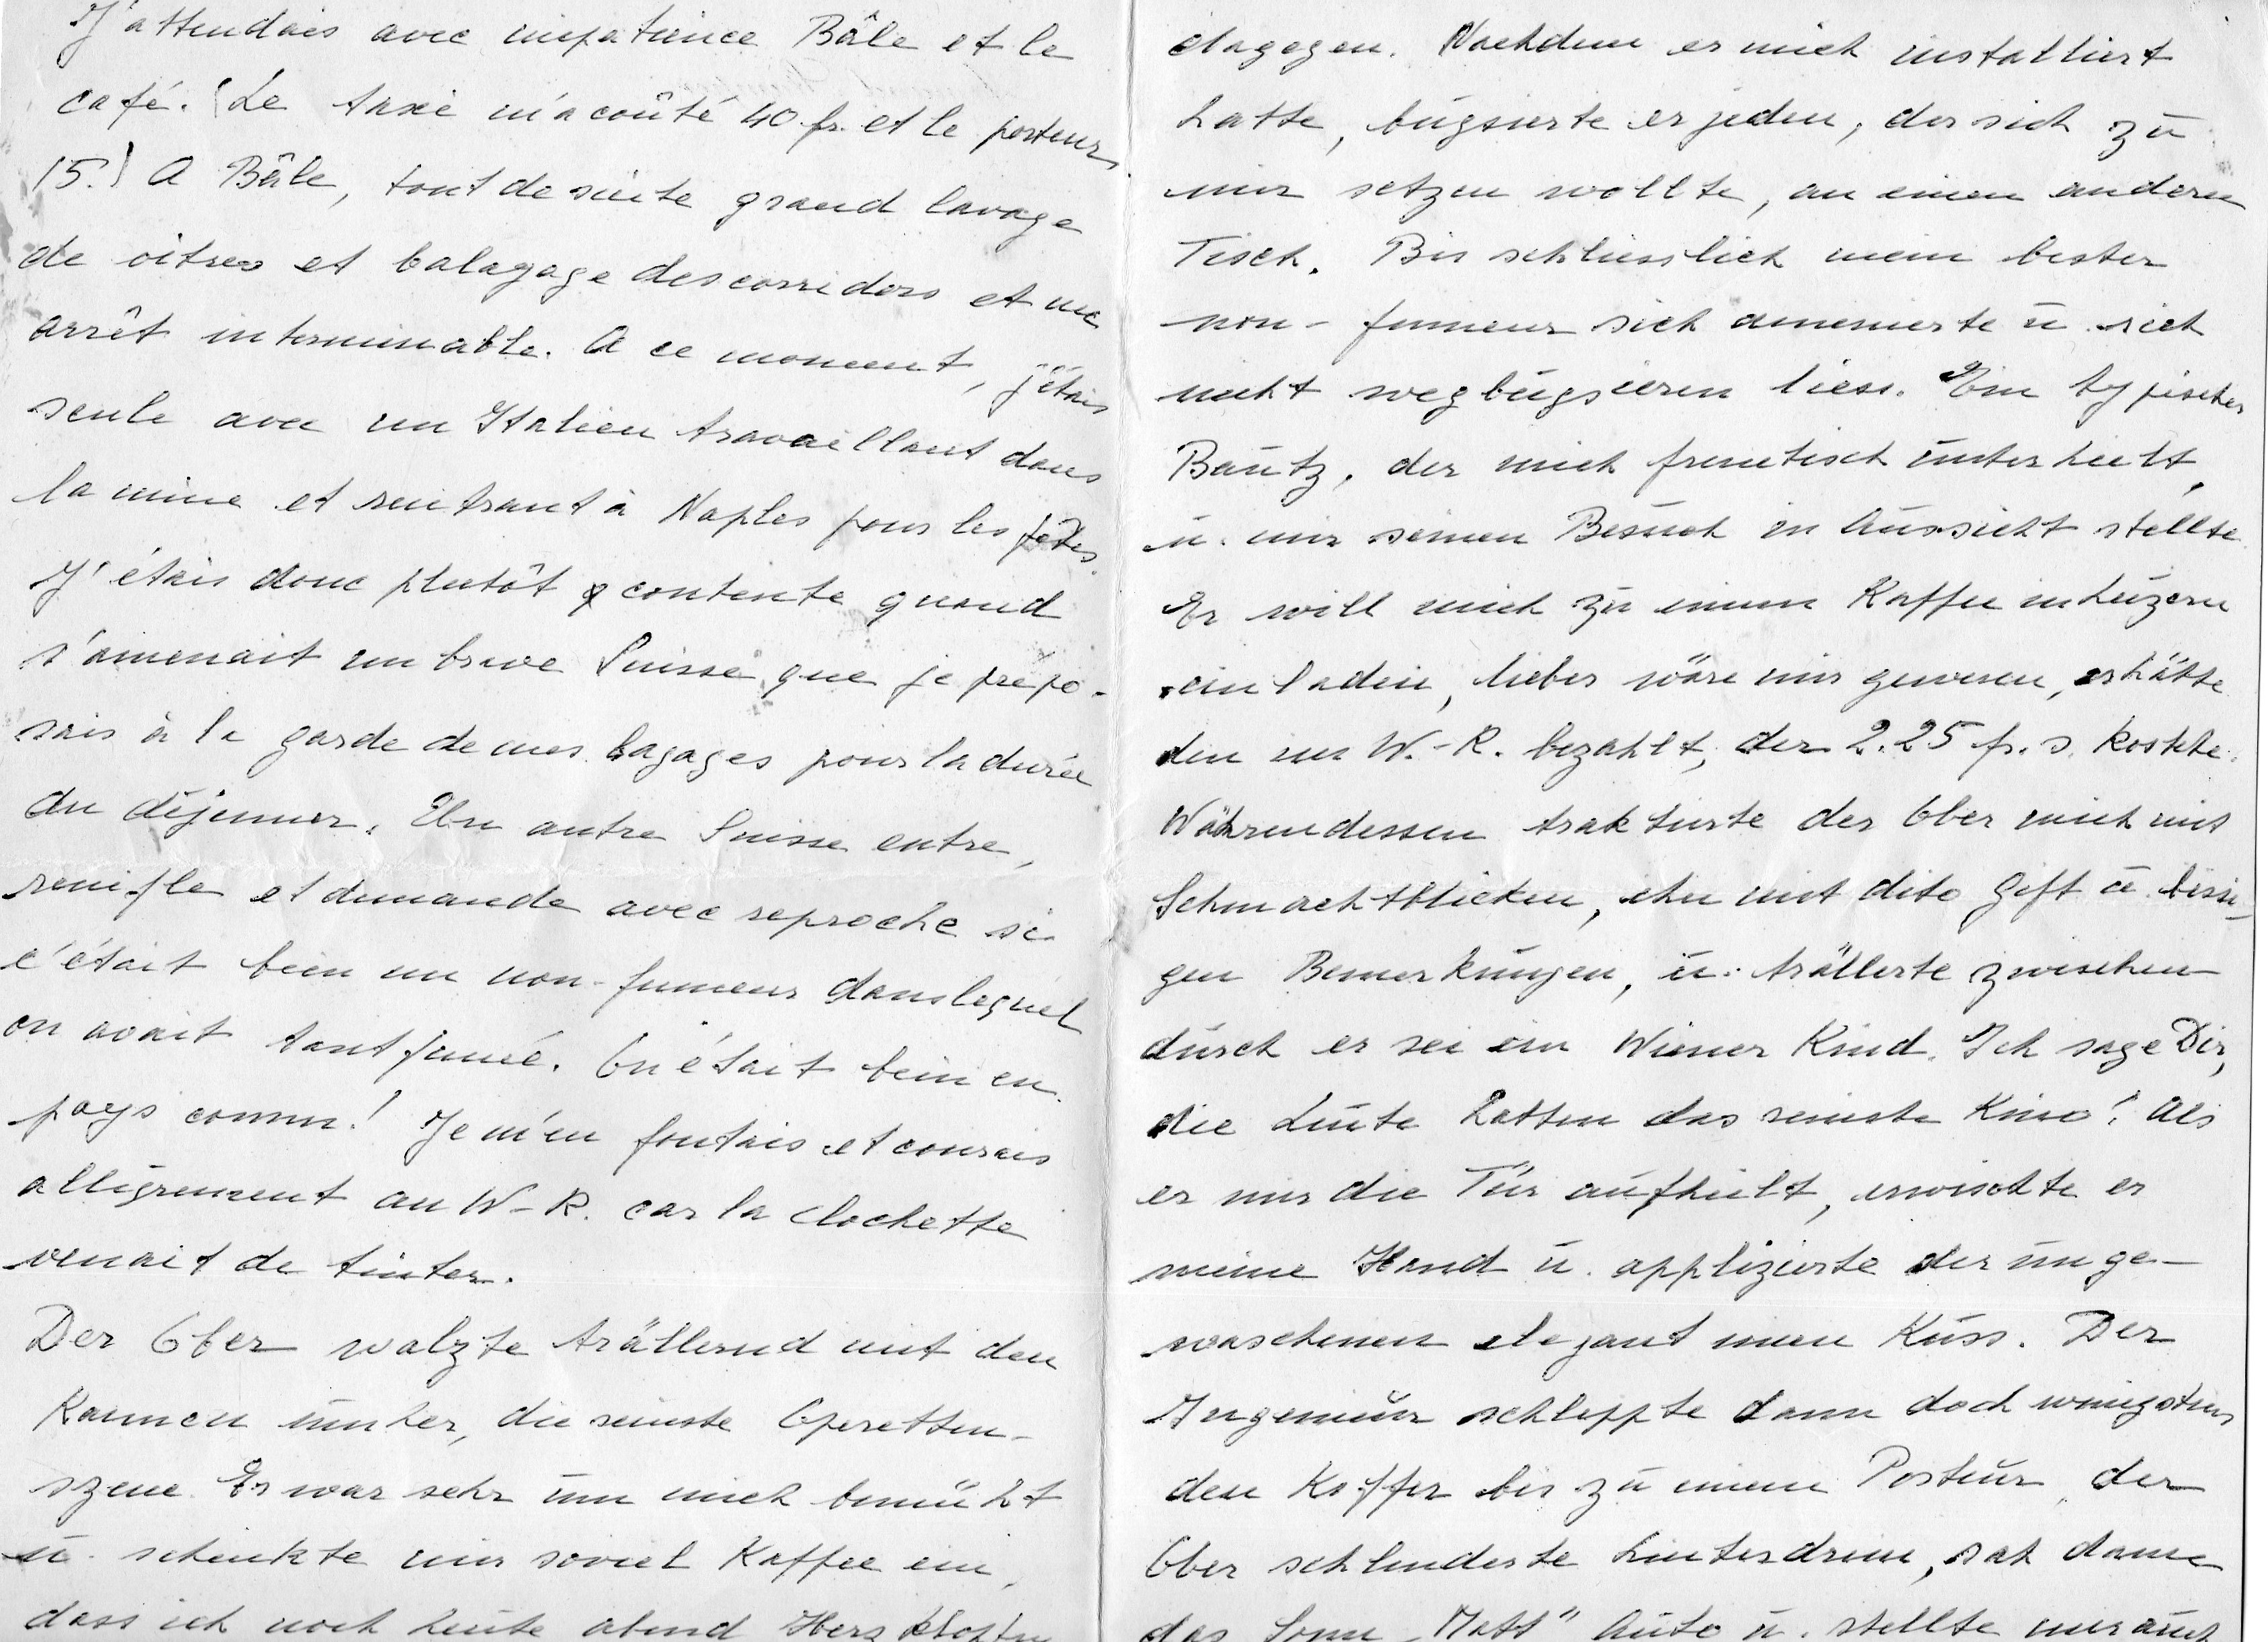 J'attendais avec impatience Bâle et le
café. (Le taxi m'a coûté 40 fr. et le porteur
15.) A Bâle, tout de suite grand lavage
de vitres et balayage des corridors et un
arrêt interminable. A ce moment, j'étais
seule avec un Italien travaillant dans
la mine et rentrant à Naples pour les fêtes.
J'étais donc plutôt contente quand
s'amenait un brave Suisse que je prépo-
sais à la garde de mes bagages pour la durée
du déjeuner. Un autre Suisse entre,
renifle et demande avec reproche si
c'était bien un non-fumeur dans lequel
on avait tant fumé. On était bien en
pays connu! Je m'en foutais et courais
allégrement au W-R. car la clochette
venait de tinter.
Der Ober walzte trällernd mit den
Kannen umher, die reinste Operetten-
szene. Er war sehr um mich bemüht
u. schenkte mir soviel Kaffee ein,
dass ich noch heute abend Herzklopfen
dagegen. Nachdem er mich installiert
hatte, bugsierte er jeden, der sich zu
mir setzen wollte, an einen anderen
Tisch. Bis schliesslich mein bester
non-fumeur sich amenierte u. sich
nicht wegbugsieren liess. Ein typischer
Bautz, der mich frenetisch unterhielt,
u. mir seinen Besuch in Aussicht stellte.
Er will mich zu einem Kaffee in Luzern
einladen, lieber wäre mir gewesen, er hätte
den im W.-R. bezahlt, der 2.25 fr. s. kostete.
Währenddessen traktierte der Ober mich mit
Schmachtblicken, ihn mit dito Gift u. bissi-
gen Bemerkungen, u. trällerte zwischen
durch er sei ein Wiener Kind. Ich sage Dir,
die Leute hatten das reinste Kino! Als
er mir die Tür aufhielt, erwischte er
meine Hand u. applizierte der unge-
waschenen elegant einen Kuss. Der
Ingenieur schleppte dann doch wenigstens
den Koffer bis zu einem Porteur, der
Ober schlenderte hinterdrein, sah dann
das Sonn Matt" Auto u. stellte mir auch